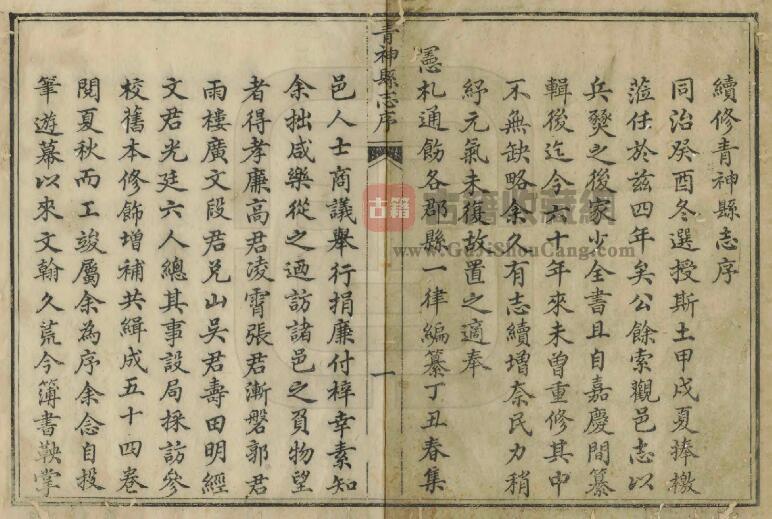 續修青神縣志序
同治癸酉冬選授斯土甲戌夏捧檄
蒞任於兹四年矣公餘索觀邑志以
兵燹之後家少全書且自嘉慶間纂
輯後迄今六十年來未曾重修其中
不無缺略余久有志續增奈民力稍
紓元氣未復故置之適奉
憲札通飭各郡縣一律編纂丁丑春集
青神縣志序
一
邑人士商議舉行捐廉付梓幸素知
余拙咸樂從之迺訪諸邑之負物望
者得孝廉高君凌霄張君漸磐郭君
雨樓廣文段君兌山吳君壽田明經
文君光廷六人總其事設局採訪參
校舊本修飾增補共緝成五十四卷
閱夏秋而工竣屬余為序余念自投
筆遊幕以來文翰久荒今簿書鞅掌
古籍
古籍收藏網
www.GuJiShouCang.com